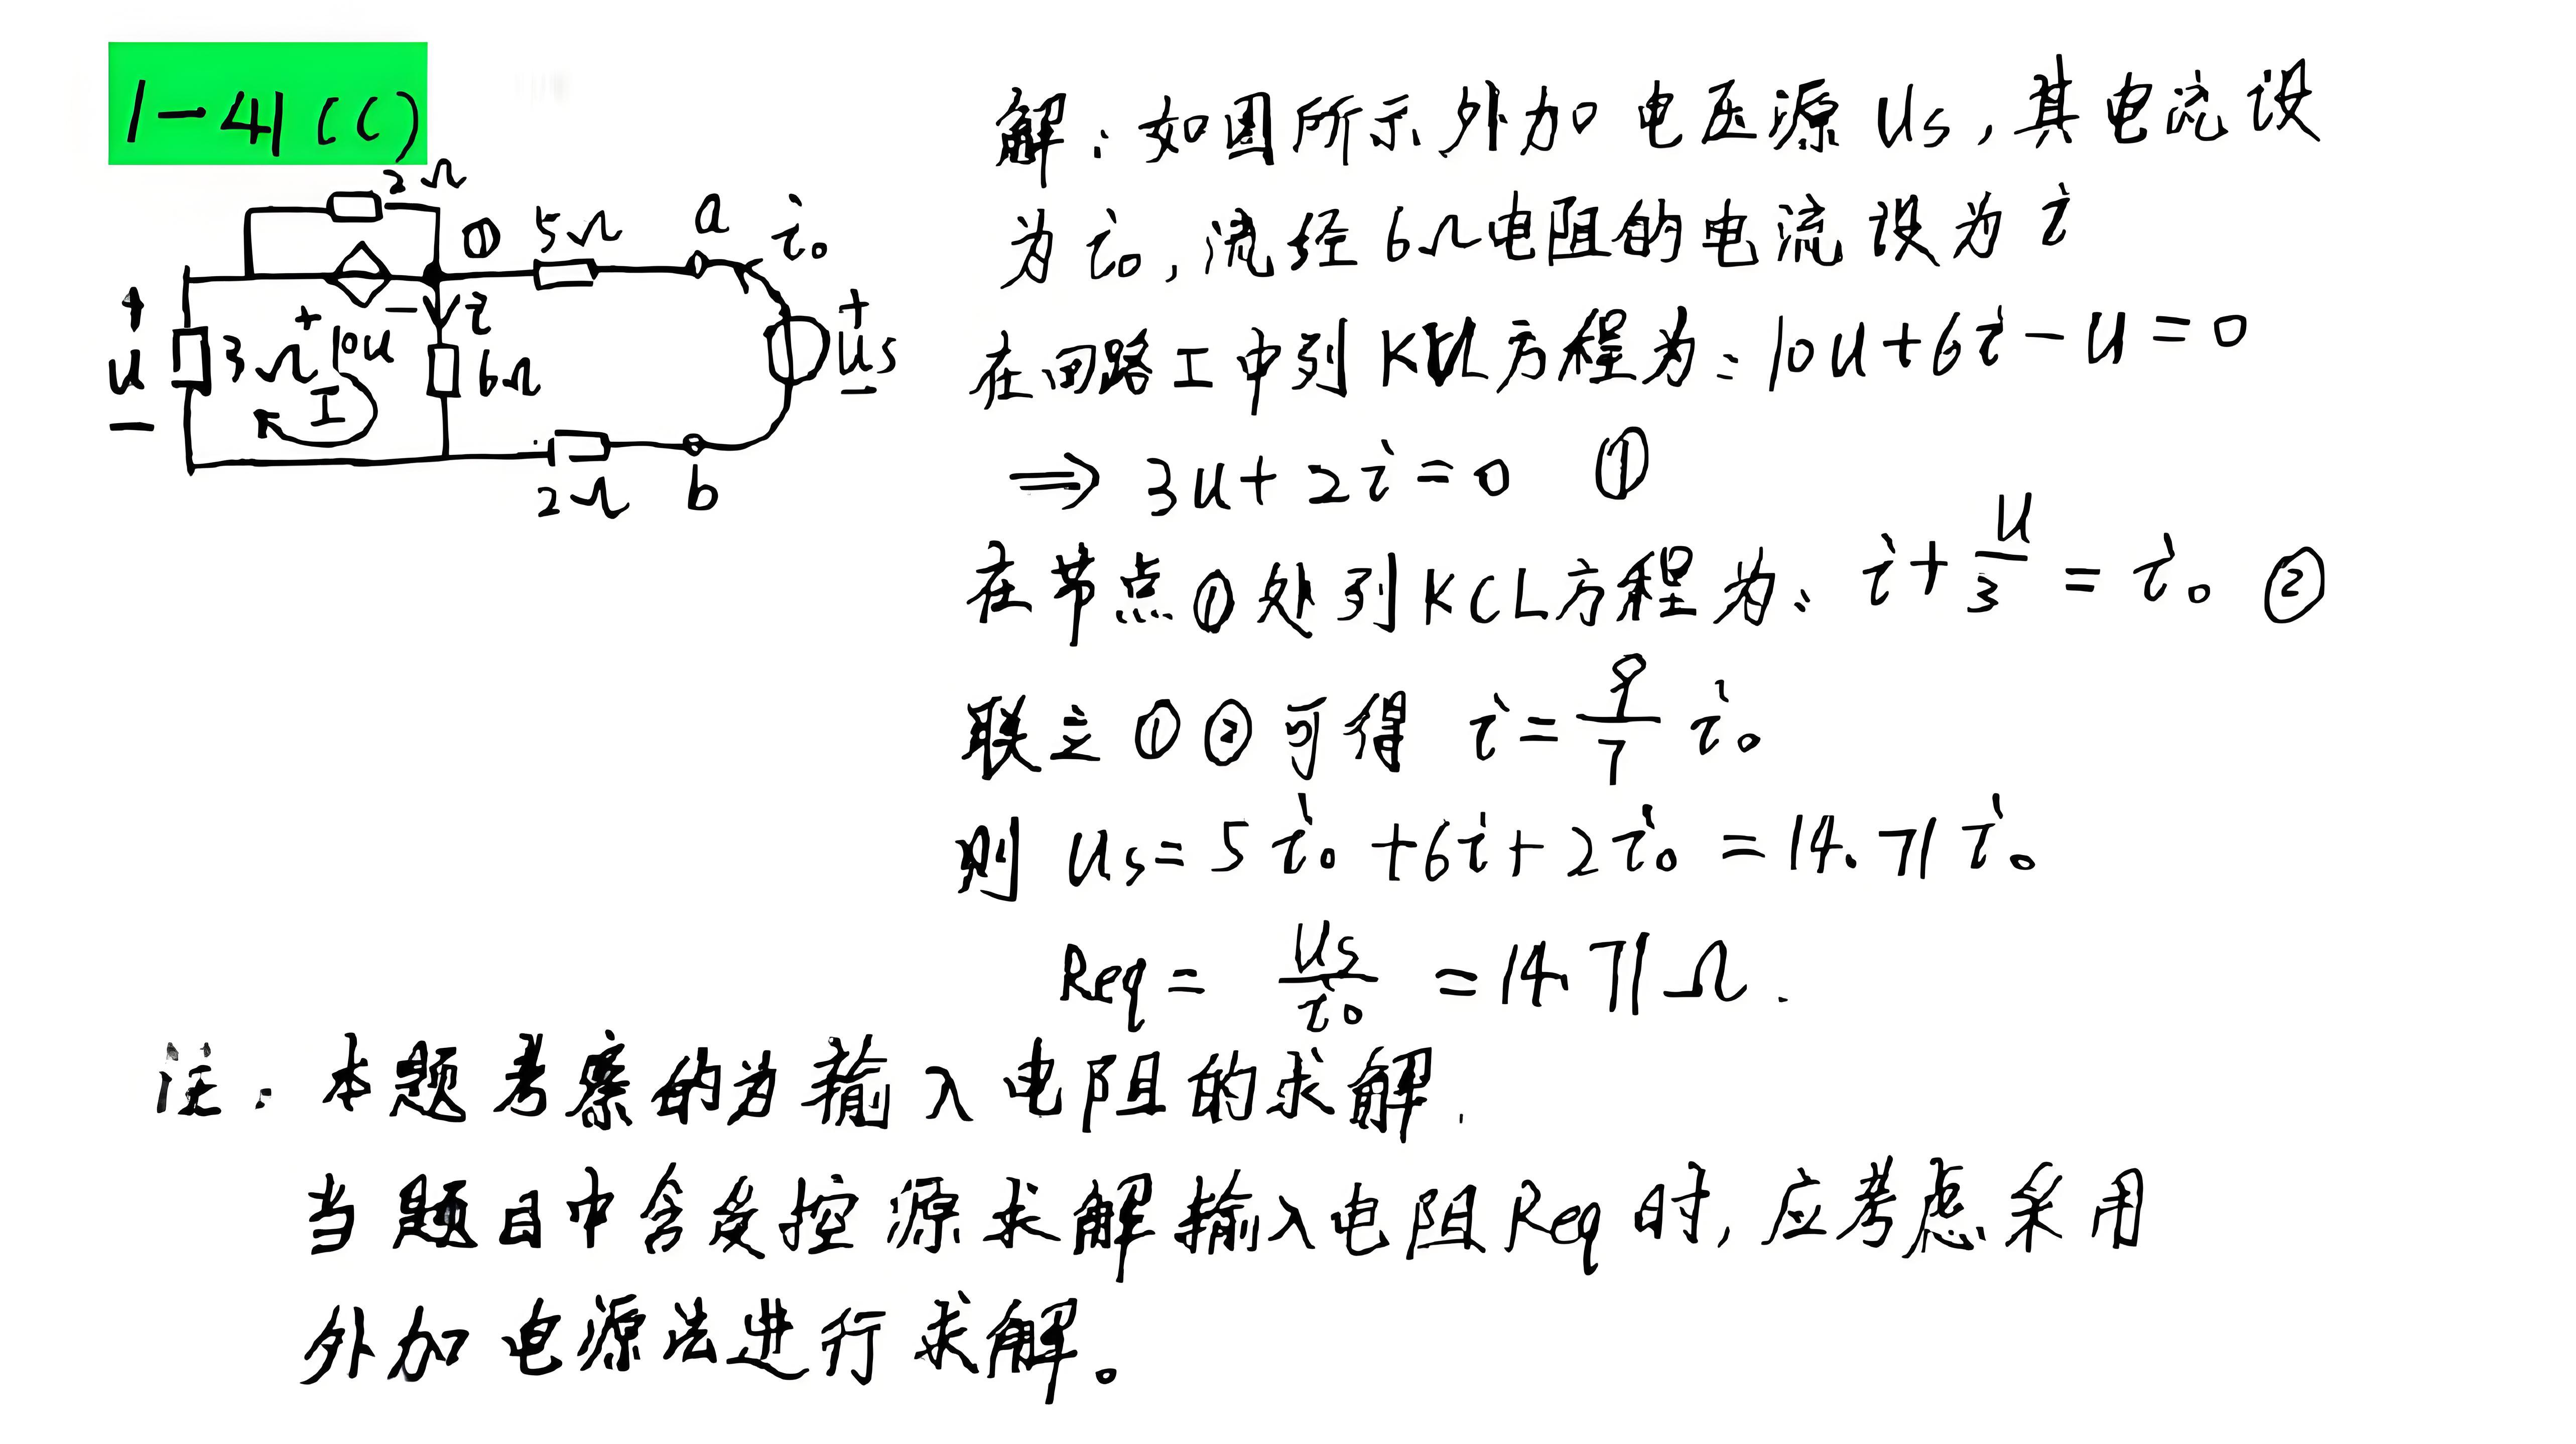 1-41(C)
2Ω
① 5Ω a i₀
+ - i +
u 3Ω 10u 6Ω us
- I -
2Ω b
解：如图所示外加电压源 Us，其电流设
为 i₀，流经 6Ω电阻的电流设为 i
在回路 I 中列 KVL方程为：10u+6i-u=0
⇒ 3u+2i=0 ①
在节点①处列KCL方程为：i+u/3=i₀ ②
联立①②可得 i=9/7 i₀
则 Us=5i₀+6i+2i₀=14.71i₀
Req=Us/i₀=14.71Ω.
注：本题考察的为输入电阻的求解.
当题目中含受控源求解输入电阻Req时，应考虑采用
外加电源法进行求解。